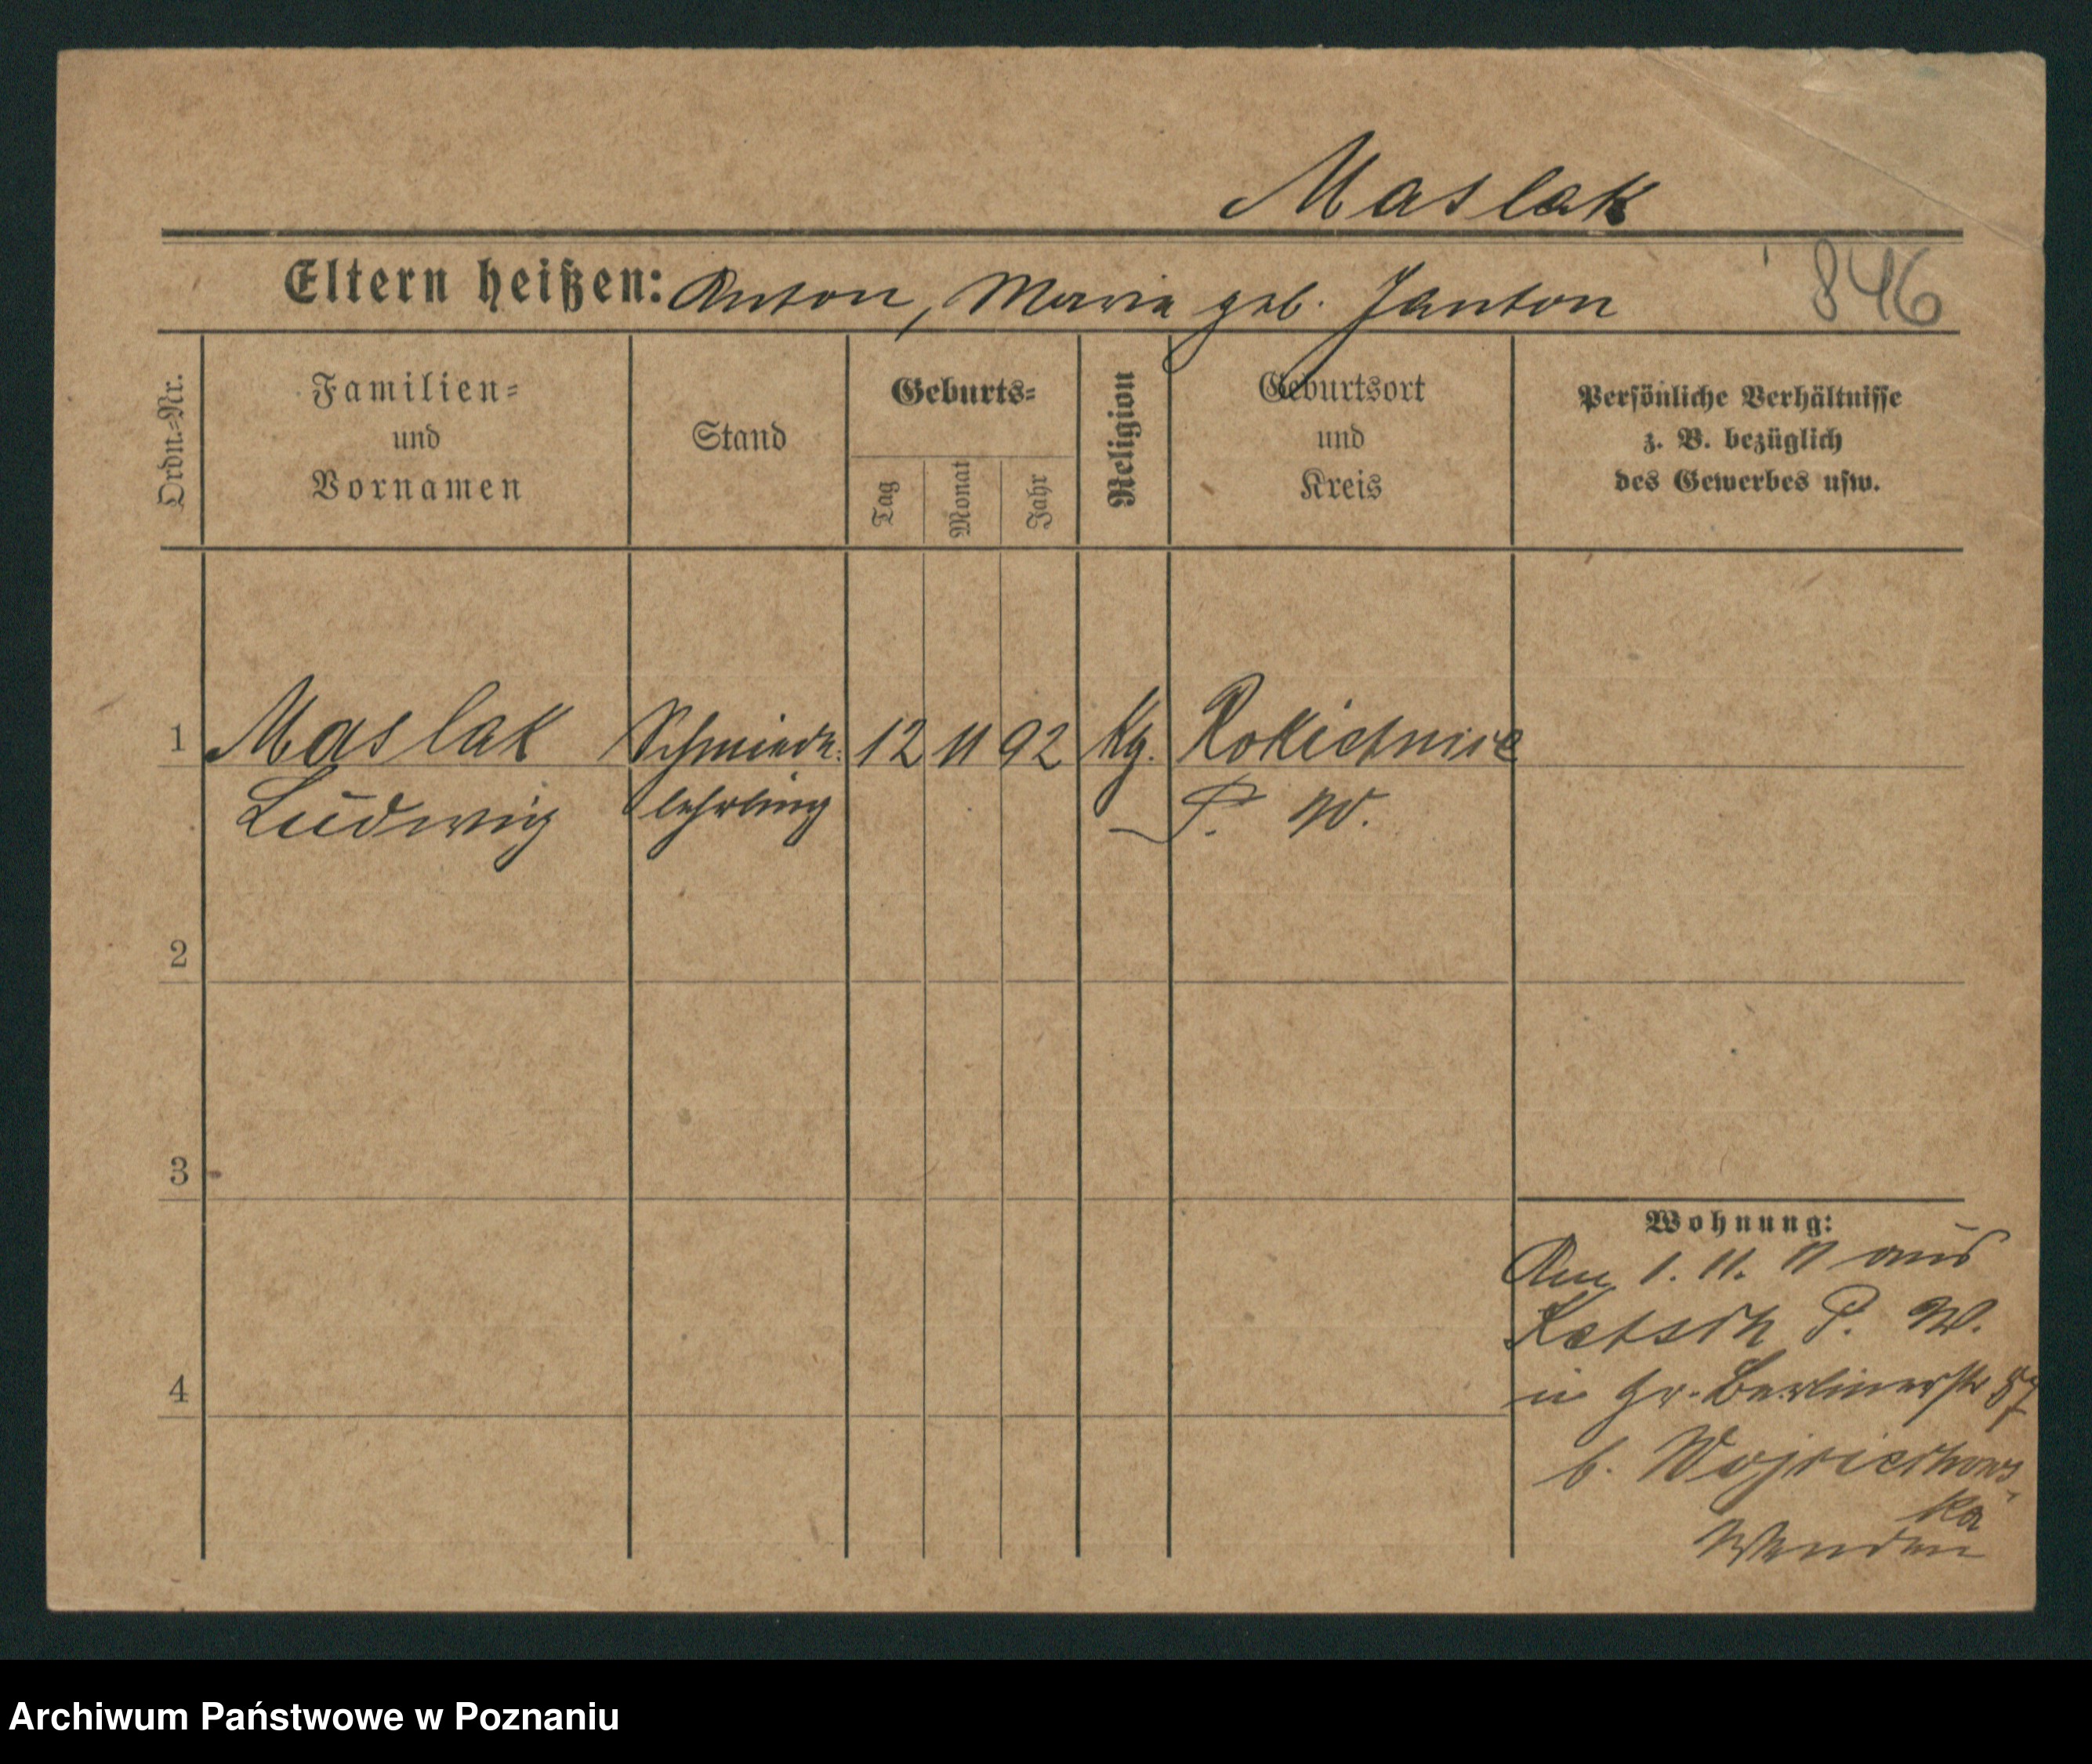 Maslak
846
Eltern heißen: Anton, Maria geb. Janton
Ordn.-Nr.
Familien-
und
Vornamen
Stand
Geburts-
Tag
Monat
Jahr
Religion
Geburtsort
und
Kreis
Persönliche Verhältnisse
z. B. bezüglich
des Gewerbes usw.
1 Maslak Schmiede- 12 11 92 Kg. Rokietnice
Ludwig lehrling P. W.
2
3
4
Wohnung:
Am 1. 11. 11 aus
P. W.
in Gr. Berlinerstr 87
b. Wojciechows-
ka
Wenden
Archiwum Państwowe w Poznaniu